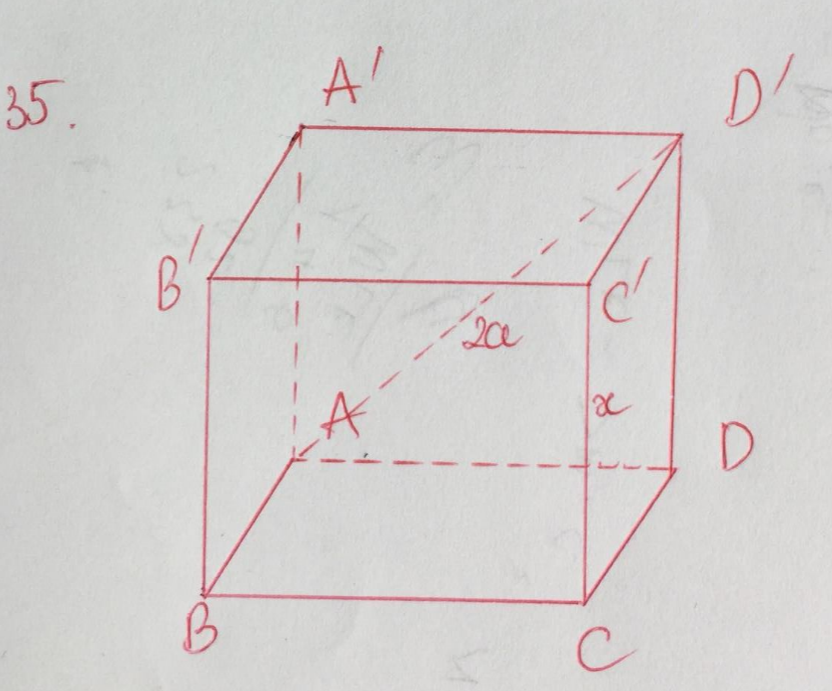 35.
A'
D'
B'
C'
2a
x
A
D
B
C